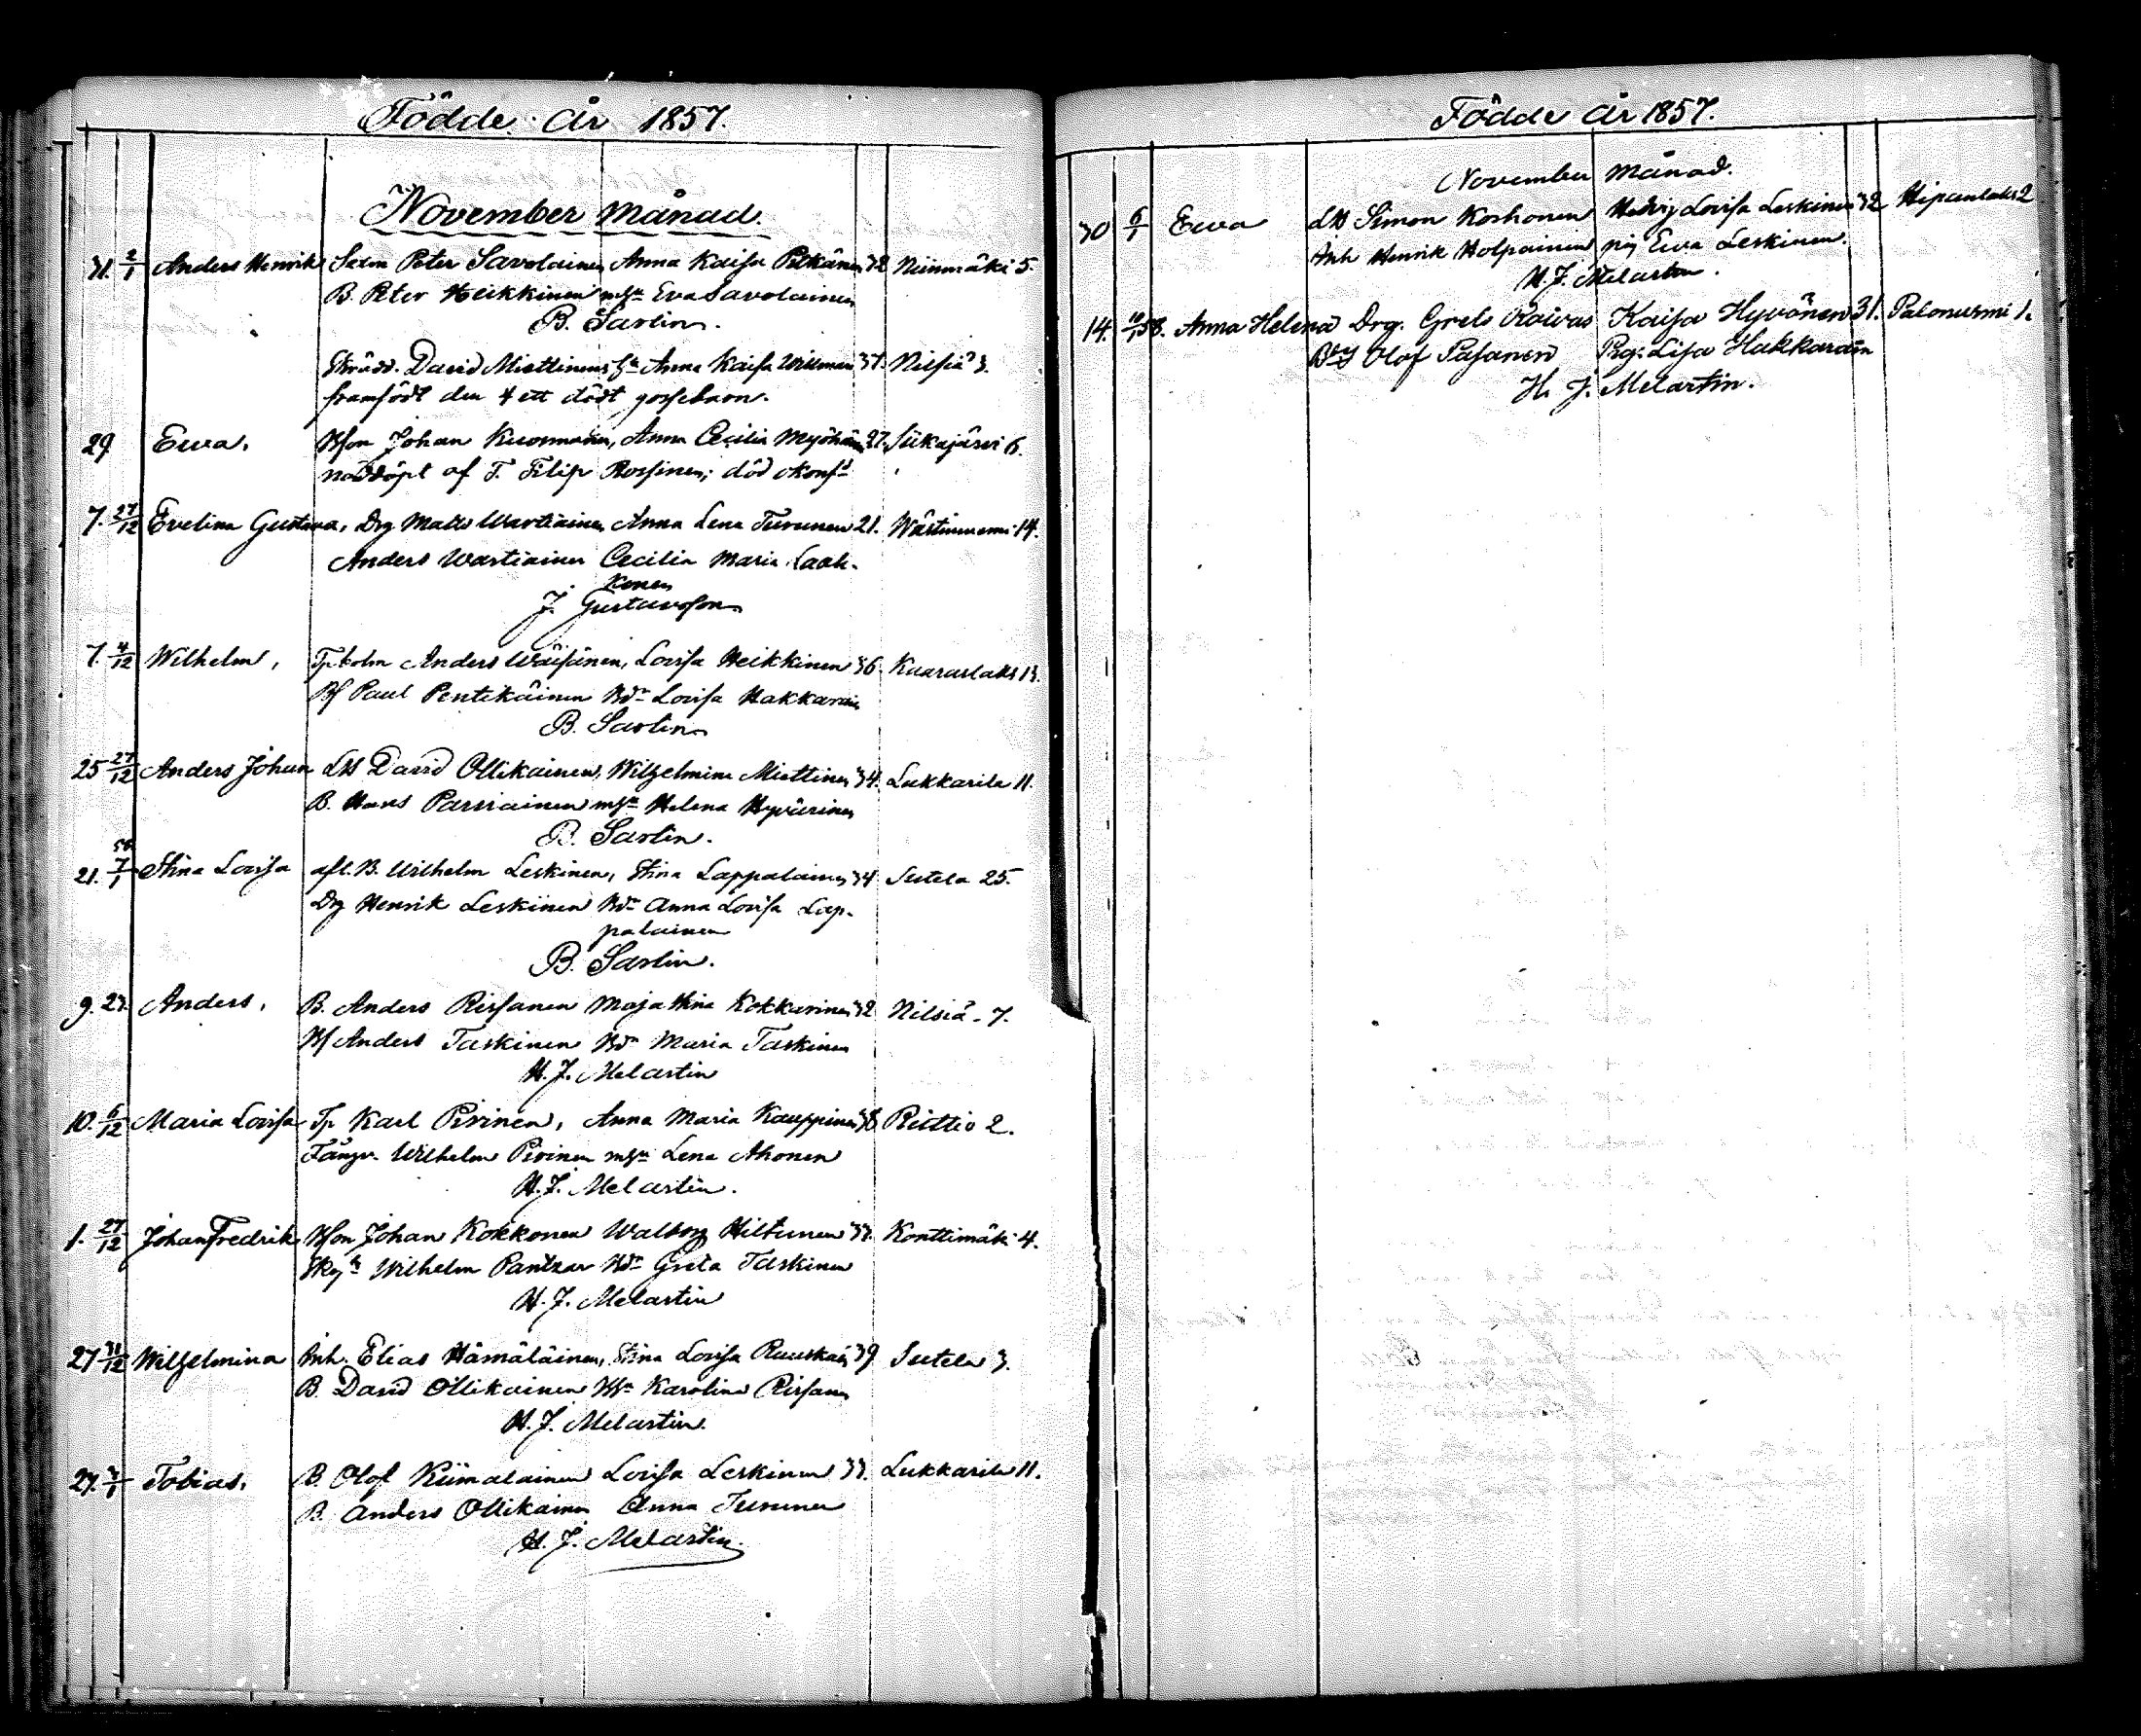 Födde År 1857.
November månad.
31. 2/1 Anders Henrik Saxm Peter Savolainen Anna Kaisa Pitkänen 32 Niinimäki 5.
B. Peter Heikkinen msn Eva Savolainen
B. Sarlin.
Skrädd. David Miettinens hu Anna Kaisa Willman 37. Nilsiä 3.
framfödt den 4 ett dödt gossebarn.
29 Ewa. Bson Johan Kuosmanen, Anna Cecilia Myöhänen 27. Siikajärvi 6.
nöddöpt af T. Filip Rossinen; död okonfd
7. 27/12 Evelina Gustava, Drg Matts Wartiainen Anna Lena Turunen 21. Wästinniemi 14.
Anders Wartiainen Cecilia Maria Laak-
konen
J. Gustavsson
7. 4/12 Wilhelm, Tp Anders Wäisänen, Lovisa Heikkinen 36. Kuuraslaks 13.
Bf Paul Pentikäinen Bdr Lovisa Hakkarain
B. Sarlin
25 27/12 Anders Johan LB David Ollikainen, Wilhelmina Miettinen 34. Lukkarila 11.
B. Hans Parviainen msn Helena Hyvärinen
B. Sarlin.
58
21. 7/1 Stina Lovisa afl. B. Wilhelm Leskinen, Stina Lappalainen 34 Sutela 25.
Drg Henrik Leskinen Bdr Anna Lovisa Lap-
palainen
B. Sarlin.
9. 23. Anders. B. Anders Rissanen Maja Stina Kokkarinen 32 Nilsiä 7.
Bf Anders Taskinen Bdr Maria Taskinen
H. J. Melartin
10. 6/12 Maria Lovisa Tp Karl Pirinen, Anna Maria Kauppinen 38 Reittio 2.
Wilhelm Pirinen msn Lena Ahonen
H. J. Melartin.
1. 27/12 Johan Fredrik Bson Johan Kokkonen Walborg Hiltunen 33. Konttimäki 4.
Wilhelm Pantzar Bdr Greta Taskinen
H. J. Melartin
27 31/12 Wilhelmina Inh. Elias Hämäläinen, Stina Lovisa Ruuskain 39 Sutela 3.
B. David Ollikainen Karolina Rissanen
H. J. Melartin.
27. 3/1 Tobias. B. Olof Kiimalainen Lovisa Leskinen 33. Lukkarila 11.
B. Anders Ollikainen Anna Turunen
H. J. Melartin.
Födde År 1857.
November månad.
30 6/1 Ewa LB Simon Korhonen Hedvig Lovisa Leskinen 32 Hipanlaks 2
Inh Henrik Holpainen pig Ewa Leskinen.
H. J. Melartin.
14. 10/1 58. Anna Helena Drg. Grels Raivas Kaisa Hyvönen 31. Palonurmi 1.
Olof Pasanen Pig: Lisa Hakkarain
H. J. Melartin.